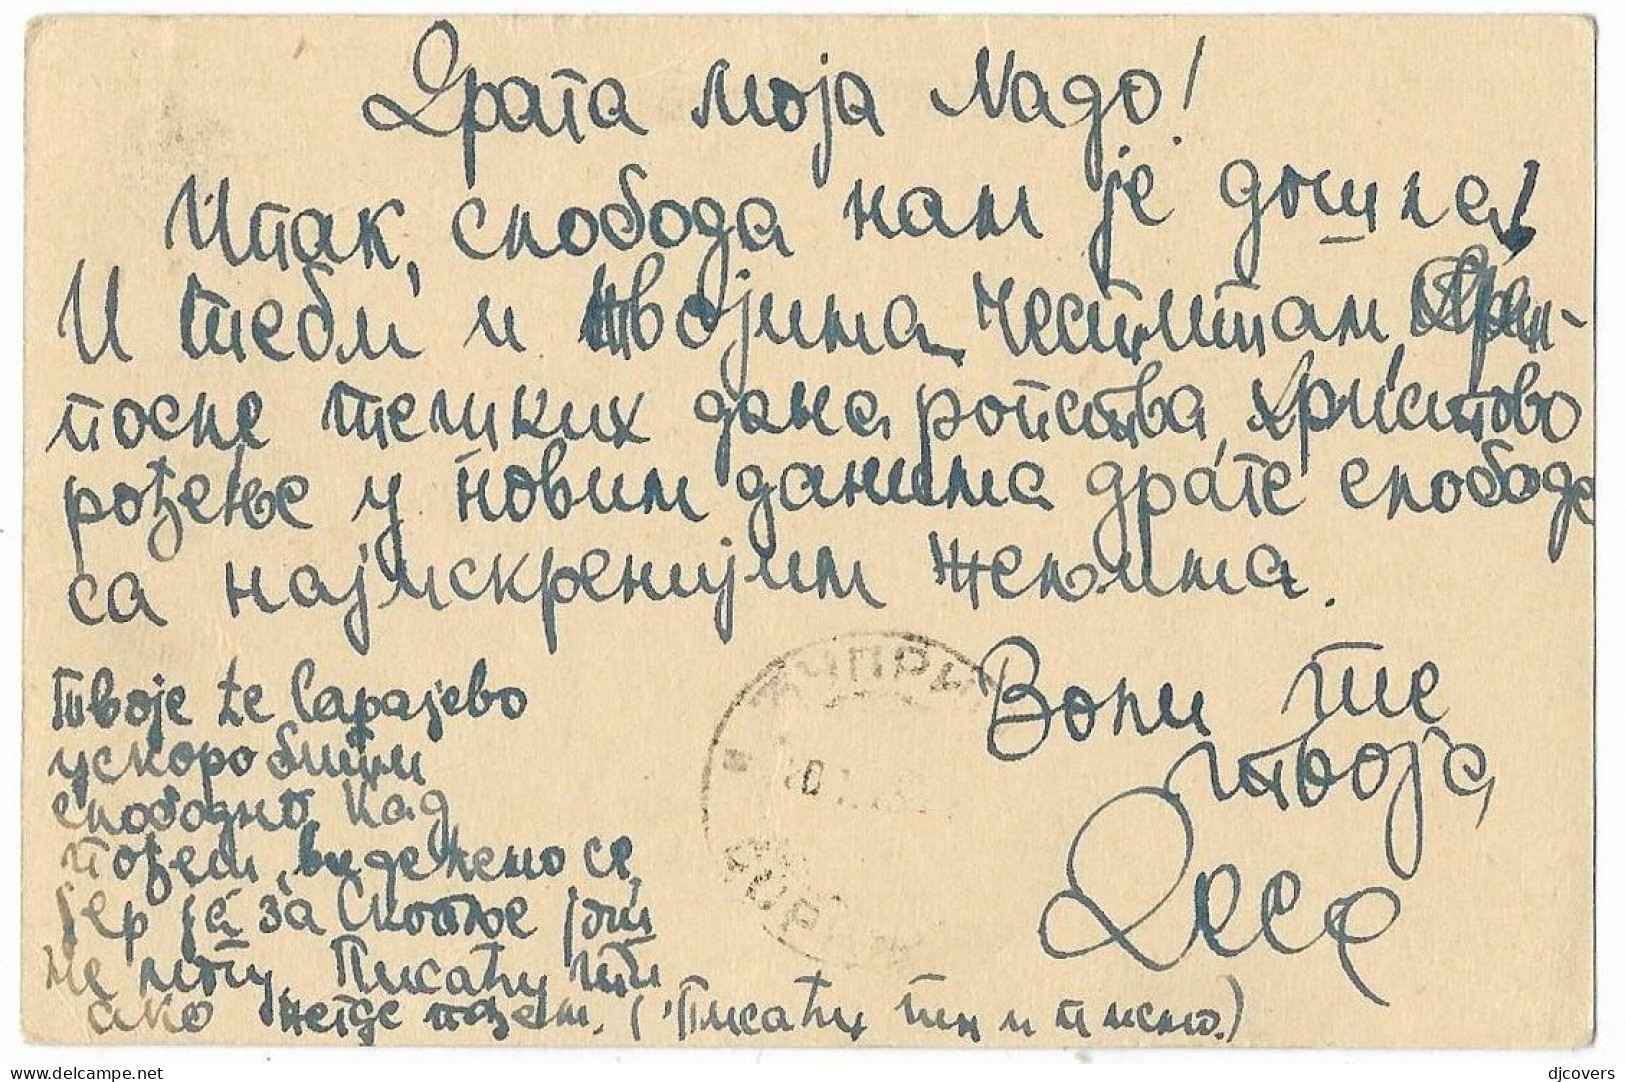 Драга моја Надо!
Ипак, слобода нам је дошла!
И теби и твојима честитам,
после тешких дана ропства, Христово
рођење у новим данима драге слободе
са најискренијим жељама.
Воли те
твоја,
Деса
Твоје ће Сарајево
ускоро бити
слободно. Кад
пођеш, видећемо се,
јер ја за Скопље још
не могу. Писаћу ти
ако негде пођем. (Писаћу ти и писмо.)
ЋУПРИ
ĆUPRI
djcovers